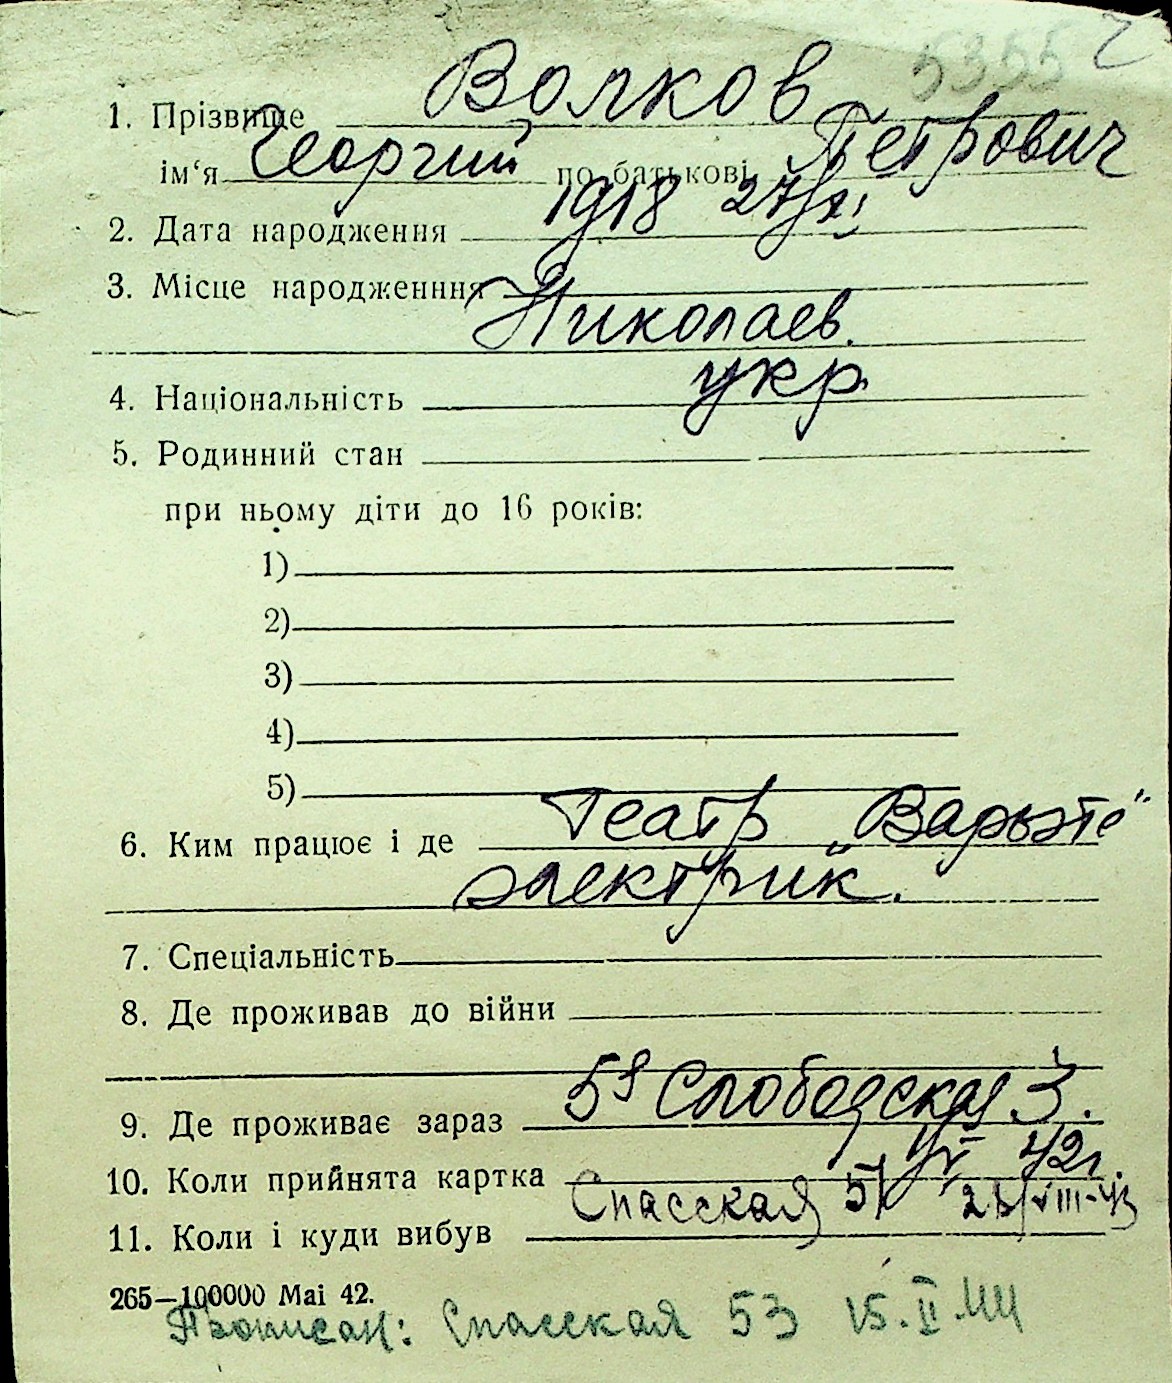 5355
1. Прізвище Волков
ім‘я Георгий по батькові Петрович
2. Дата народження 1918 27/XI
3. Місце народженння
Николаев.
4. Національність укр.
5. Родинний стан
при ньому діти до 16 років:
1)
2)
3)
4)
5)
6. Ким працює і де Театр „Варьэте“
электрик.
7. Спеціальність
8. Де проживав до війни
9. Де проживає зараз 5я Слободская 3.
10. Коли прийнята картка 42г.
11. Коли і куди вибув Спасская VIII-43
265—100000 Mai 42.
Прописан: Спасская 53 15.II.44